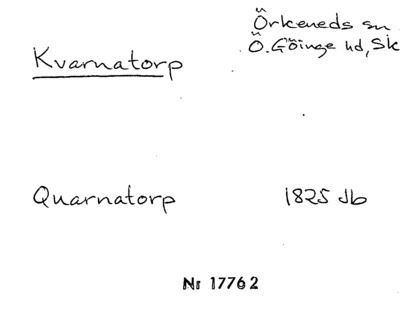 Örkeneds sn
Kvarnatorp
Ö. Göinge hd, Sk
Quarnatorp 1825 Jb
Nr 17762